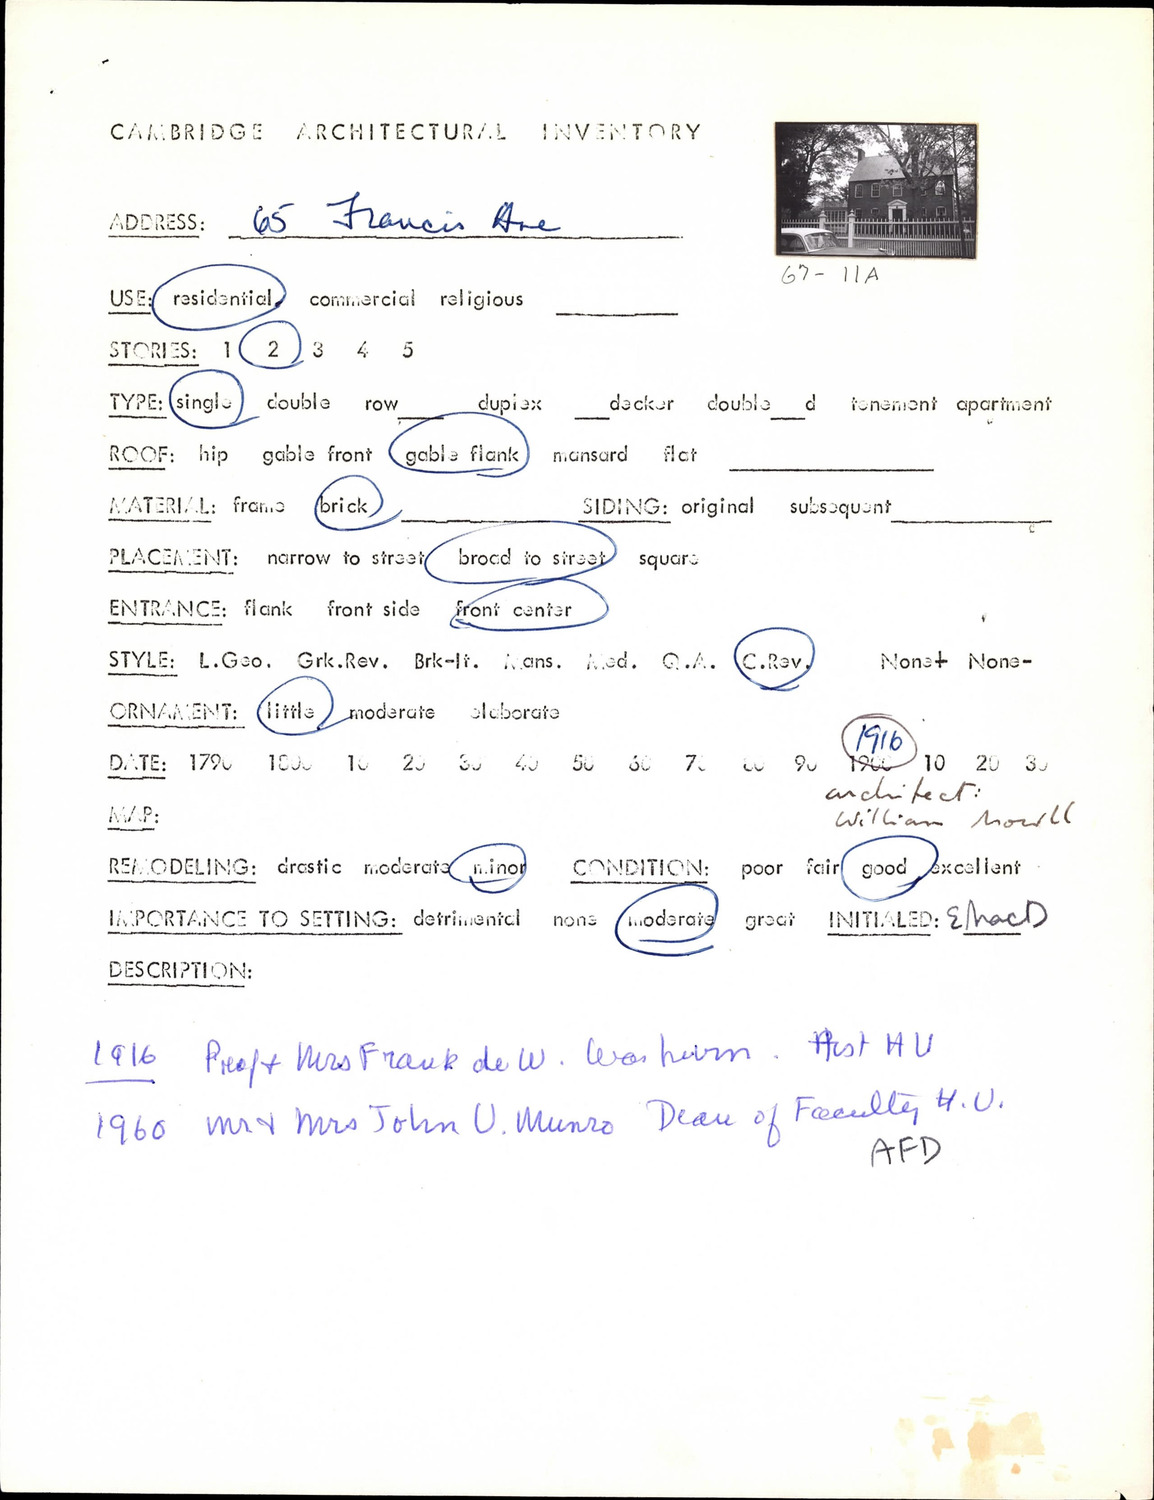 CAMBRIDGE ARCHITECTURAL INVENTORY
ADDRESS: 65 Francis Ave
67-11A
USE: residential commercial religious
STORIES: 1 2 3 4 5
TYPE: single double row____ duplex ____decker double____d tenement apartment
ROOF: hip gable front gable flank mansard flat
MATERIAL: frame brick SIDING: original subsequent
PLACEMENT: narrow to street broad to street square
ENTRANCE: flank front side front center
STYLE: L.Geo. Grk.Rev. Brk-It. Mans. Med. Q.A. C.Rev. None+ None-
ORNAMENT: little moderate elaborate
1916
DATE: 1790 1800 10 20 30 40 50 60 70 80 90 1900 10 20 30
architect:
MAP: William
REMODELING: drastic moderate minor CONDITION: poor fair good excellent
IMPORTANCE TO SETTING: detrimental none moderate great INITIALED: EMacD
DESCRIPTION:
1916 Prof + Mrs Frank de W. Washburn. HU
1960 Mr + Mrs John U. Munro Dean of Faculty H.U.
AFD